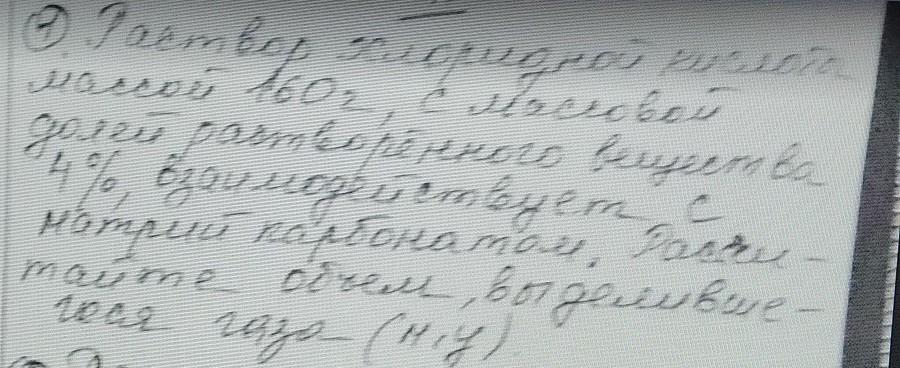 7) Раствор хлоридной кислоты
массой 160г, с массовой
долей растворённого вещества
4%, взаимодействует с
натрий карбонатом. Рассчи-
тайте объем, выделивше-
гося газа (н,у)